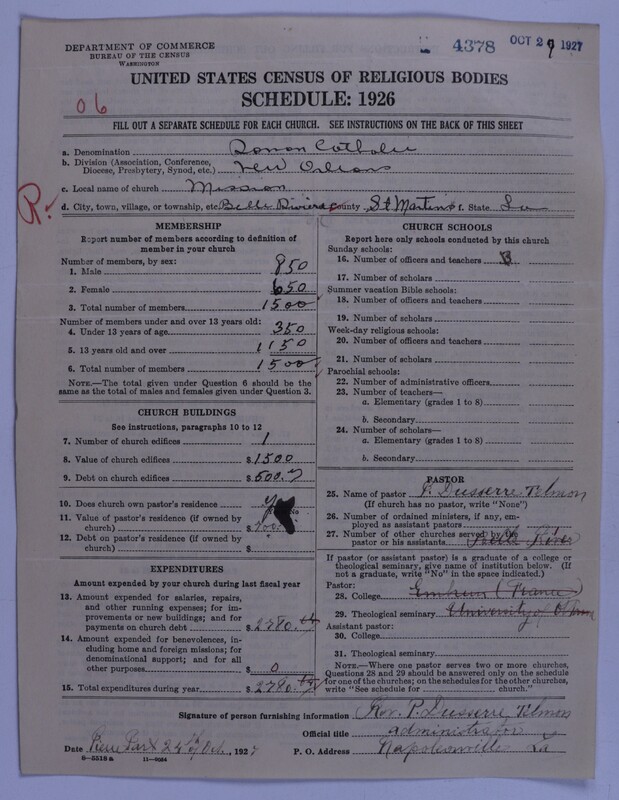 DEPARTMENT OF COMMERCE
BUREAU OF THE CENSUS
WASHINGTON
4378 OCT 29 1927
UNITED STATES CENSUS OF RELIGIOUS BODIES
SCHEDULE: 1926
06
FILL OUT A SEPARATE SCHEDULE FOR EACH CHURCH. SEE INSTRUCTIONS ON THE BACK OF THIS SHEET
a. Denomination Roman Catholic
b. Division (Association, Conference, Diocese, Presbytery, Synod, etc.) New Orleans
c. Local name of church Mission
R.
d. City, town, village, or township, etc. Belle Riviere County St Martins f. State La
MEMBERSHIP
Report number of members according to definition of member in your church
Number of members, by sex:
1. Male 850
2. Female 650
3. Total number of members 1500
Number of members under and over 13 years old:
4. Under 13 years of age 350
5. 13 years old and over 1150
6. Total number of members 1500
NOTE.—The total given under Question 6 should be the same as the total of males and females given under Question 3.
CHURCH BUILDINGS
See instructions, paragraphs 10 to 12
7. Number of church edifices 1
8. Value of church edifices $1500
9. Debt on church edifices $500.
10. Does church own pastor's residence
11. Value of pastor's residence (if owned by church) $
12. Debt on pastor's residence (if owned by church) $
EXPENDITURES
Amount expended by your church during last fiscal year
13. Amount expended for salaries, repairs, and other running expenses; for improvements or new buildings; and for payments on church debt $2780.
14. Amount expended for benevolences, including home and foreign missions; for denominational support; and for all other purposes $ 0
15. Total expenditures during year $2780.
CHURCH SCHOOLS
Report here only schools conducted by this church
Sunday schools:
16. Number of officers and teachers 3
17. Number of scholars
Summer vacation Bible schools:
18. Number of officers and teachers
19. Number of scholars
Week-day religious schools:
20. Number of officers and teachers
21. Number of scholars
Parochial schools:
22. Number of administrative officers
23. Number of teachers—
a. Elementary (grades 1 to 8)
b. Secondary
24. Number of scholars—
a. Elementary (grades 1 to 8)
b. Secondary
PASTOR
25. Name of pastor P. Dusserre Telmon
(If church has no pastor, write "None")
26. Number of ordained ministers, if any, employed as assistant pastors
27. Number of other churches served by the pastor or his assistants
If pastor (or assistant pastor) is a graduate of a college or theological seminary, give name of institution below. (If not a graduate, write "No" in the space indicated.)
Pastor:
28. College Embrun (France)
29. Theological seminary University of
Assistant pastor:
30. College
31. Theological seminary
NOTE.—Where one pastor serves two or more churches, Questions 28 and 29 should be answered only on the schedule for one of the churches; on the schedules for the other churches, write "See schedule for church."
Signature of person furnishing information Rev. P. Dusserre Telmon
Official title administrator
Date 24 Oct., 1927 P. O. Address Napoleonville La
8—5518a 11—9034